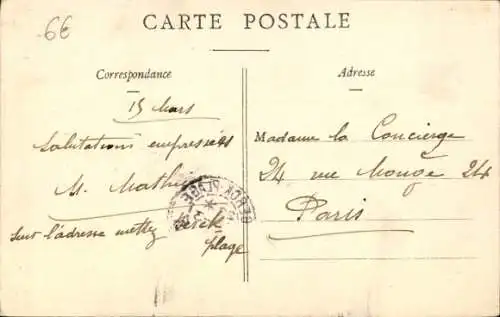 6€
CARTE POSTALE
Correspondance
Adresse
15 Mars
Salutations empressées
M. Mathi
Sur l'adresse mettez Berck
plage
Madame la Concierge
24 rue Monge 24
Paris
BERCK PLAGE